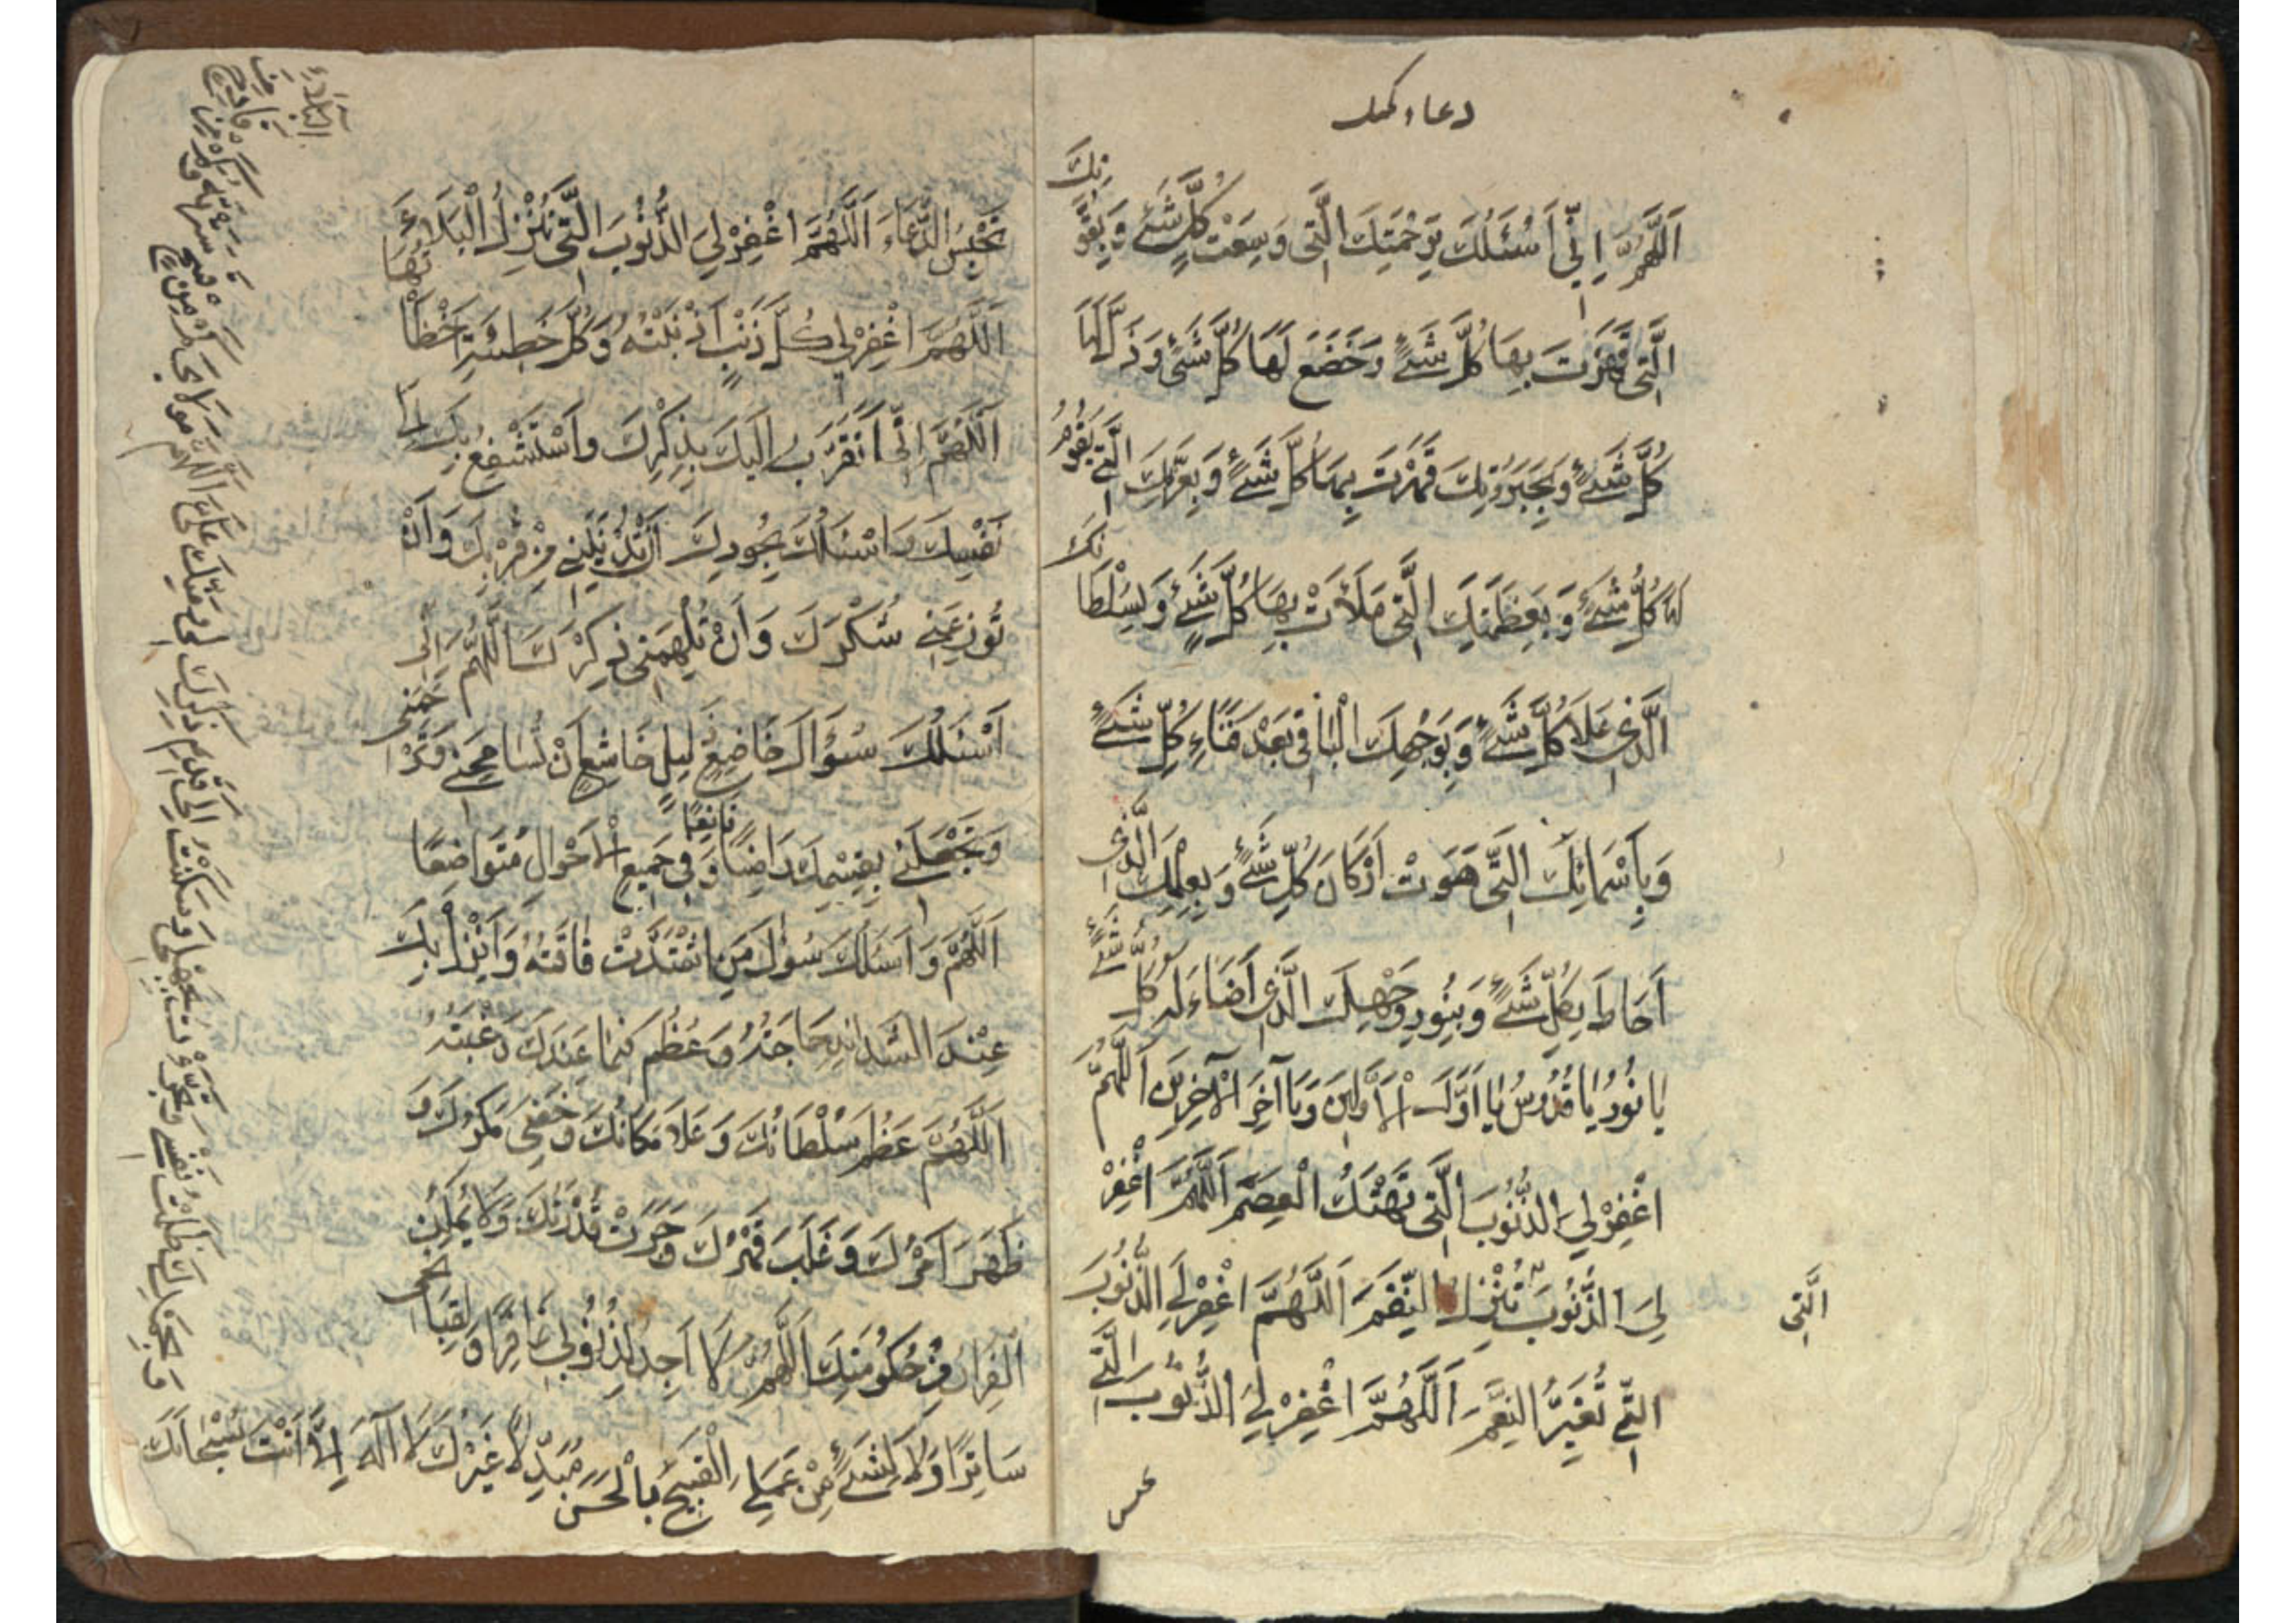 دعاء كميل
اَللّٰهُمَّ اِنِّي اَسْئَلُكَ بِرَحْمَتِكَ الَّتِي وَسِعَتْ كُلَّ شَيْءٍ وَبِقُوَّتِكَ
الَّتِي قَهَرْتَ بِهَا كُلَّ شَيْءٍ وَخَضَعَ لَهَا كُلُّ شَيْءٍ وَذَلَّ لَهَا
كُلُّ شَيْءٍ وَبِجَبَرُوتِكَ قَهَرْتَ بِهَا كُلَّ شَيْءٍ وَبِعِزَّتِكَ الَّتِي يَقُومُ
لَهَا كُلُّ شَيْءٍ وَبِعَظَمَتِكَ الَّتِي مَلَأَتْ بِهَا كُلَّ شَيْءٍ وَبِسُلْطَانِكَ
الَّذِي عَلَا كُلَّ شَيْءٍ وَبِوَجْهِكَ الْبَاقِي بَعْدَ فَنَاءِ كُلِّ شَيْءٍ
وَبِأَسْمَائِكَ الَّتِي هَوَتْ اَرْكَانَ كُلِّ شَيْءٍ وَبِعِلْمِكَ الَّذِي
اَحَاطَ بِكُلِّ شَيْءٍ وَبِنُورِ وَجْهِكَ الَّذِي اَضَاءَ لَهُ كُلُّ شَيْءٍ
يَا نُورُ يَا قُدُّوسُ يَا اَوَّلَ الْاَوَّلِينَ وَيَا آخِرَ الْآخِرِينَ اَللّٰهُمَّ
اغْفِرْ لِيَ الذُّنُوبَ الَّتِي تَهْتِكُ الْعِصَمَ اَللّٰهُمَّ اغْفِرْ
لِيَ الذُّنُوبَ تُنْزِلُ النِّقَمَ اَللّٰهُمَّ اغْفِرْ لِيَ الذُّنُوبَ
الَّتِي
الَّتِي تُغَيِّرُ النِّعَمَ اَللّٰهُمَّ اغْفِرْ لِيَ الذُّنُوبَ الَّتِي
تحبس
تَحْبِسُ الدُّعَاءَ اَللّٰهُمَّ اغْفِرْ لِيَ الذُّنُوبَ الَّتِي تُنْزِلُ الْبَلَاءَ
اَللّٰهُمَّ اغْفِرْ لِي كُلَّ ذَنْبٍ اَذْنَبْتُهُ وَكُلَّ خَطِيئَةٍ اَخْطَأْتُهَا
اَللّٰهُمَّ اِنِّي اَتَقَرَّبُ اِلَيْكَ بِذِكْرِكَ وَاَسْتَشْفِعُ بِكَ اِلَى
نَفْسِكَ وَاَسْئَلُكَ بِجُودِكَ اَنْ تُدْنِيَنِي مِنْ قُرْبِكَ وَاَنْ
تُوزِعَنِي شُكْرَكَ وَاَنْ تُلْهِمَنِي ذِكْرَكَ اَللّٰهُمَّ اِنِّي
اَسْئَلُكَ سُؤَالَ خَاضِعٍ ذَلِيلٍ خَاشِعٍ اَنْ تُسَامِحَنِي وَتَرْحَمَنِي
وَتَجْعَلَنِي بِقِسْمِكَ رَاضِيًا قَانِعًا وَفِي جَمِيعِ الْاَحْوَالِ مُتَوَاضِعًا
اَللّٰهُمَّ وَاَسْئَلُكَ سُؤَالَ مَنِ اشْتَدَّتْ فَاقَتُهُ وَاَنْزَلَ بِكَ
عِنْدَ الشَّدَائِدِ حَاجَتُهُ وَعَظُمَ فِيمَا عِنْدَكَ رَغْبَتُهُ
اَللّٰهُمَّ عَظُمَ سُلْطَانُكَ وَعَلَا مَكَانُكَ وَخَفِيَ مَكْرُكَ وَ
ظَهَرَ اَمْرُكَ وَغَلَبَ قَهْرُكَ وَجَرَتْ قُدْرَتُكَ وَلَا يُمْكِنُ
الْفِرَارُ مِنْ حُكُومَتِكَ اَللّٰهُمَّ لَا اَجِدُ لِذُنُوبِي غَافِرًا وَلَا لِقَبَائِحِي
سَاتِرًا وَلَا لِشَيْءٍ مِنْ عَمَلِيَ الْقَبِيحِ بِالْحَسَنِ مُبَدِّلًا غَيْرَكَ لَا اِلٰهَ اِلَّا اَنْتَ سُبْحَانَكَ
وَبِحَمْدِكَ ظَلَمْتُ نَفْسِي وَتَجَرَّأْتُ بِجَهْلِي وَسَكَنْتُ اِلَى قَدِيمِ ذِكْرِكَ لِي وَمَنِّكَ عَلَيَّ اَللّٰهُمَّ مَوْلَايَ كَمْ مِنْ قَبِيحٍ سَتَرْتَهُ وَكَمْ مِنْ فَادِحٍ مِنَ الْبَلَاءِ